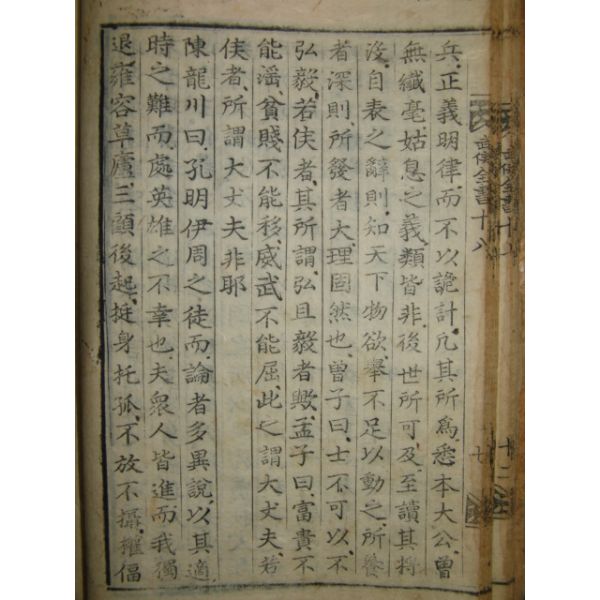 兵正義明律而不以詭計凡其所爲悉本大公曾
無纖毫姑息之義類皆非後世所可及至讀其將
沒自表之辭則知天下物欲擧不足以動之所養
者深則所發者大理固然也曾子曰士不可以不
弘毅若侯者其所謂弘且毅者歟孟子曰富貴不
能滛貧賤不能移威武不能屈此之謂大丈夫若
侯者所謂大丈夫非耶
陳龍川曰孔明伊周之徒而論者多異說以其適
時之難而處英雄之不幸也夫衆人皆進而我獨
退雍容草廬三顧後起挺身托孤不放不攝權偪
武侯全書十八